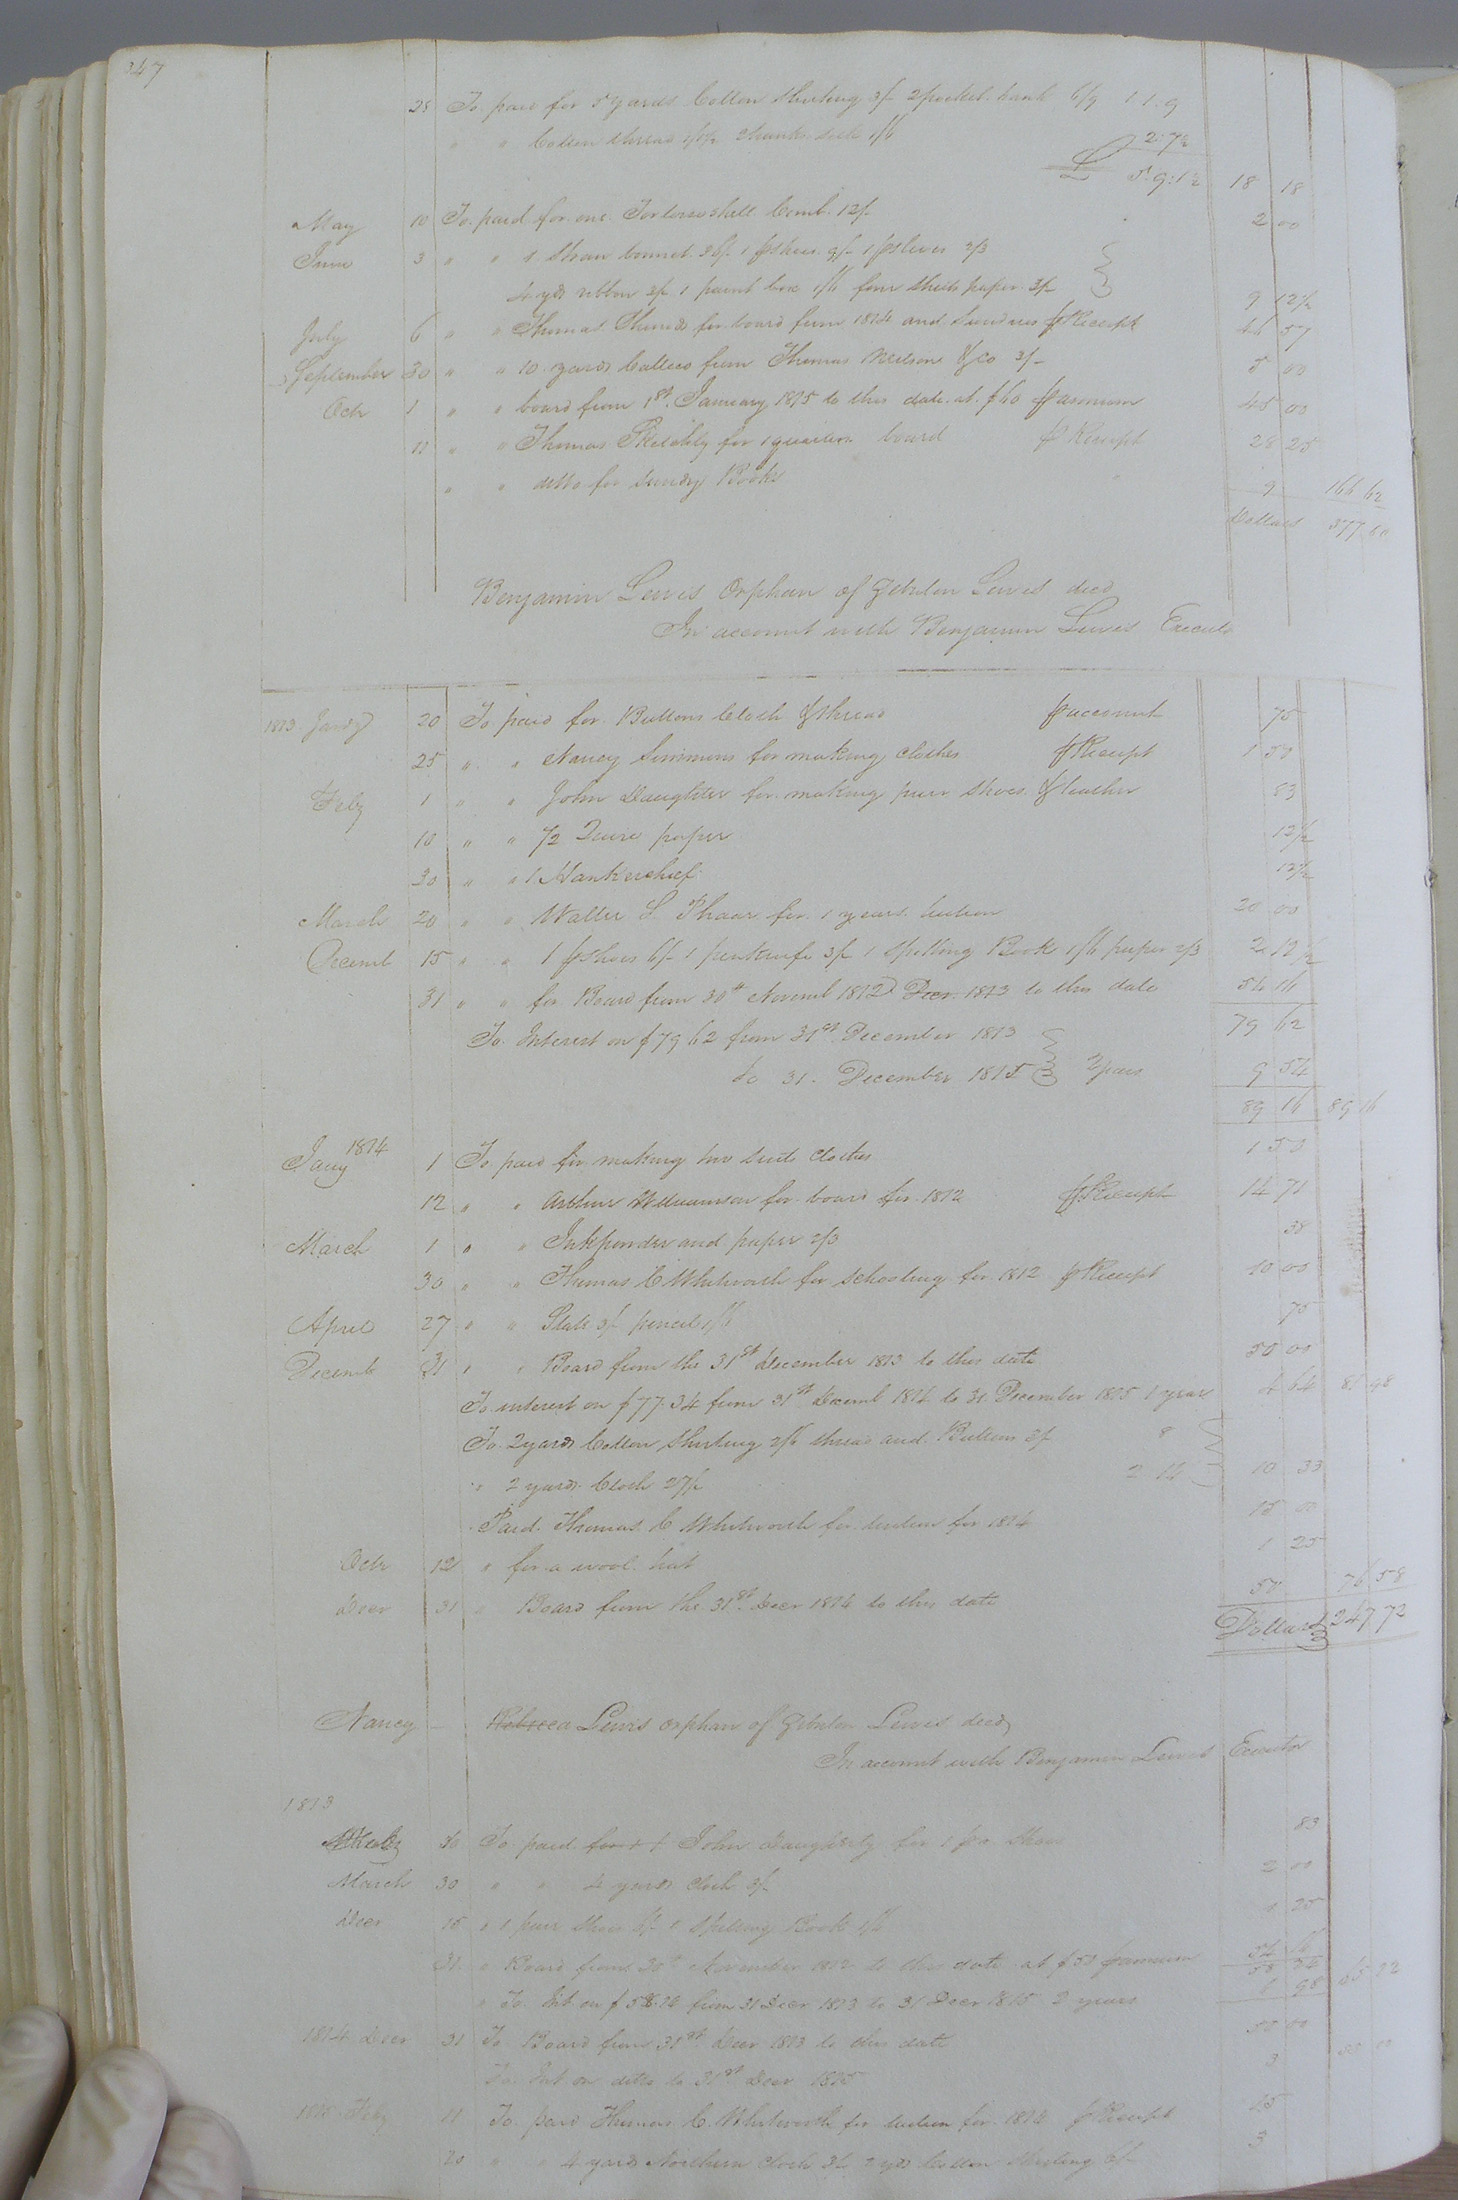 347
28 To paid for 5 yards Cotton Shirting 3/- 2 pocket hank 6/9 1.1.9
" " Cotton thread 1/1½ 1/6 2.7½
£ 5.9.1½ 18 18
May 10 To paid for one Tortoise shell Comb 12/- 2 00
June 3 " " 1 Straw bonnet 36/- 1 pr shoes 9/- 1 pr 2/3
4 yds ribbon 3/- 1 paint box 1/6 four sheets paper 3/- 9 12½
July 6 " " Thomas for board from 1814 and Sundries pr Receipt 57
September 30 " " 10 yards Callico from Thomas & Co 3/- 5 00
Octr 1 " " board from 1st January 1815 to this date at $60 pr annum 45 00
11 " " Thomas for 1 quarters board pr Receipt 28 25
" " ditto for Sundry Books 9 166 62
Dollars 377 60
Benjamin Lewis Orphan of Zebulon Lewis decd
In account with Benjamin Lewis Executr
1813 Jany 20 To paid for Buttons Cloth & thread pr account 75
25 " " Nancy Simmons for making Clothes pr Receipt 1 50
Feby 1 " " John Daughter for making pair Shoes & leather 83
10 " " ½ Quire paper 12½
30 " " 1 Hankerchief 12½
March 20 " " Walter S. Pharr for 1 years tuition 20 00
Decemb 15 " " 1 pr shoes 6/- 1 penknife 3/- 1 Spelling Book 1/6 paper 2/3 2 12½
31 " " for Board from 30th Novemb 1812 Decr 1813 to this date 54 16
79 62
To Interest on $79 62 from 31st December 1813
to 31. December 1815 2 years 9 54
89 16 89 16
Jany 1814 1 To paid for making two Suits Clothes 1 50
12 " " Arthur Williamson for board for 1812 pr Receipt 14 71
March 1 " " Inkpowder and paper 2/3 38
30 " " Thomas C Whitworth for Schooling for 1812 pr Receipt 10 00
April 27 " " Slate 3/- pencil 1/6 75
Decemb 31 " " Board from the 31st December 1813 to this date 50 00
To interest on $77.34 from 31st Decemb 1814 to 31 December 1815 1 year 4 64 81 98
To 2 yards Cotton Shirting 2/6 thread and Buttons 3/- 8
" 2 yards Cloth 27/- 2.14 10 33
Paid Thomas C Whitworth for tuition for 1814 15 00
Octr 12 " for a wool hat 1 25
Decr 31 " Board from the 31st Decr 1814 to this date 50 76 58
Dollars 247 72
Nancy Rebecca Lewis orphan of Zebulon Lewis decd
In account with Benjamin Lewis Executor
1813
Feby 10 To paid for 1 John Daughety for 1 pr Shoes 83
March 30 " " 4 yards Cloth 3/- 2 00
Decr 15 " 1 pair Shoes 6/- 1 Spelling Book 1/6 1 25
31 " Board from 30th November 1812 to this date at $50 pr annum 54 16
58 24
" To Int on $58.24 from 31 Decr 1813 to 31 Decr 1815 2 years 6 98 65 22
1814 Decr 31 To Board from 31st Decr 1813 to this date 50 00
To Int on ditto to 31st Decr 1815 3 53 00
1815 Feby 11 To paid Thomas C. Whitworth for tuition for 1814 pr Receipt 15
20 " " 4 yards Northern Cloth 3/- 2 yds Cotton Shirting 6/- 3